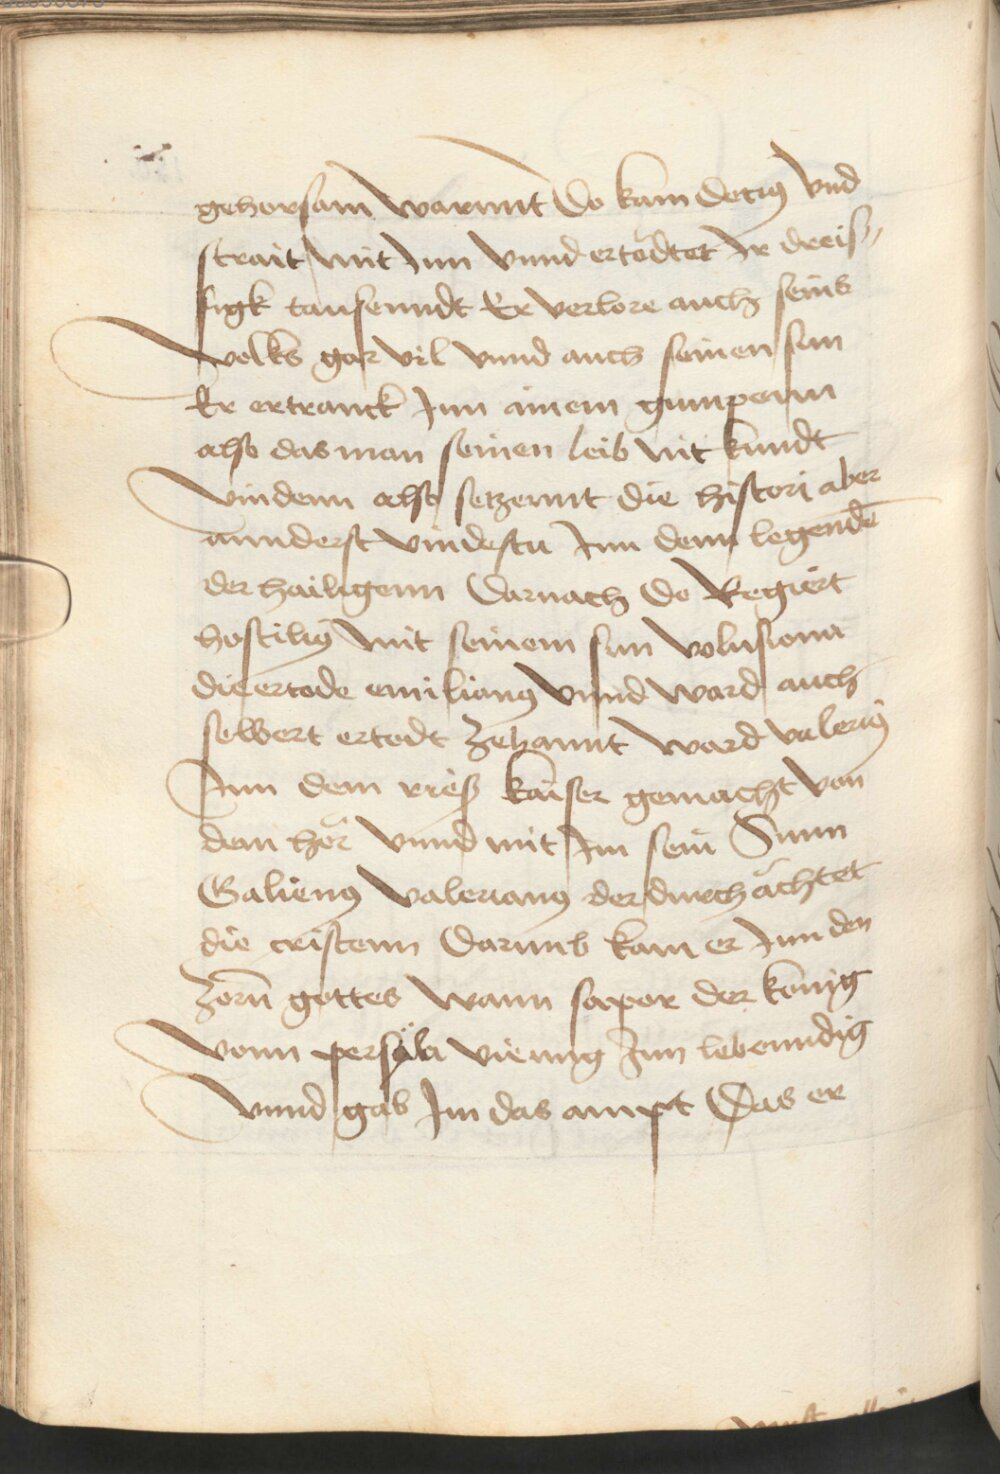 gehorsam warnnt Do kam decius vnd
strait mit Inn vnnd ertödtet Ir dreis-
sigk tausenndt Er verlore auch seins
volks gar vil vnnd auch seinen sun
Er ertranck Inn ainem gumpenn
also das man seinen leib nit kundt
vindenn also setzennt die histori aber
annderst vindestu Inn denn legendē
der hailigenn Darnach do Regiert
hostilius mit seinem sun volusiona
die ertode emilianus vnnd ward auch
selbert ertodt Zehannt ward valerius
Inn dem rieß kaiser gemacht von
dem hör vnnd mit Im sein Sunn
Galienus valerianus der durchächtet
die cristenn Darumb kam er Inn den
Zorn gottes wann sapor der könig
vonn persÿia vieng Inn lebenndig
vnnd gab Im das ampt Das er